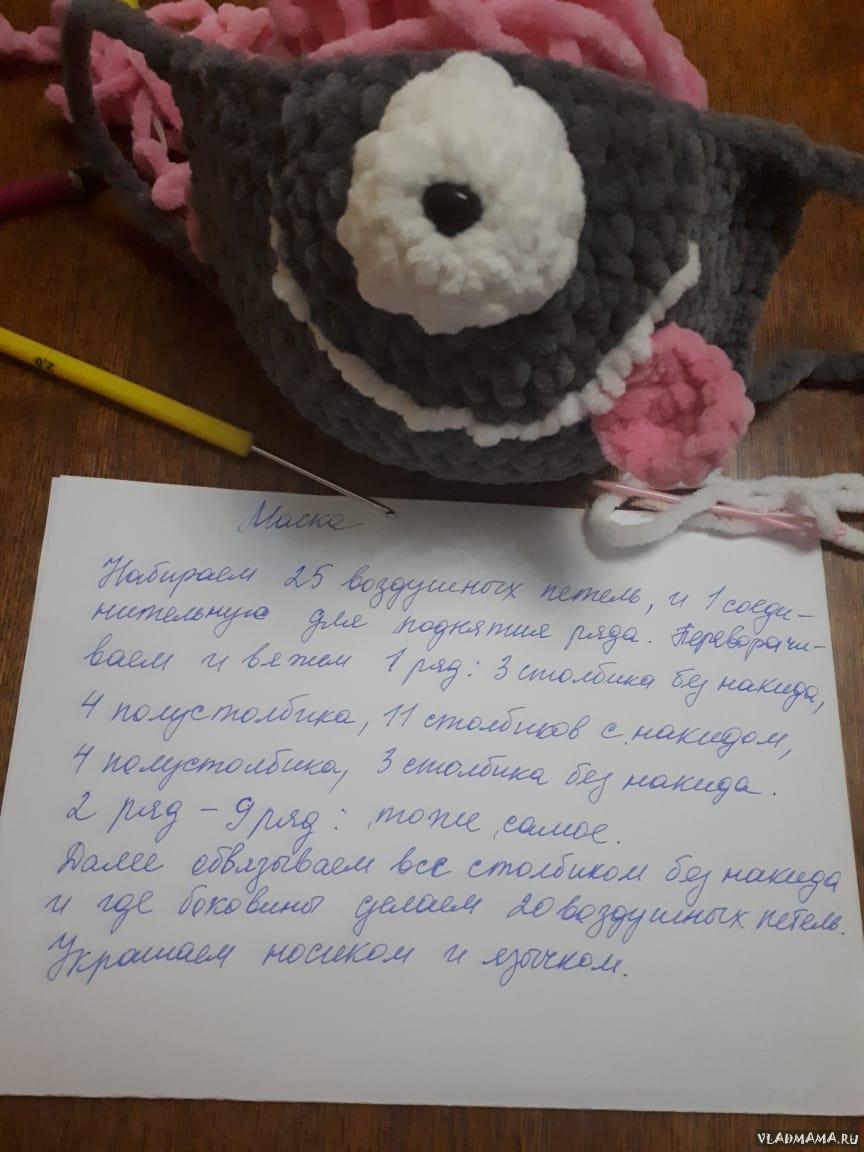 2,0
Маска
Набираем 25 воздушных петель, и 1 соеди-
нительную для поднятия ряда. Переворачи-
ваем и вяжем 1 ряд: 3 столбика без накида,
4 полустолбика, 11 столбиков с накидом,
4 полустолбика, 3 столбика без накида.
2 ряд - 9 ряд: тоже самое.
Далее обвязываем все столбиком без накида
и где боковины делаем 20 воздушных петель.
Украшаем носиком и язычком.
VLADMAMA.RU